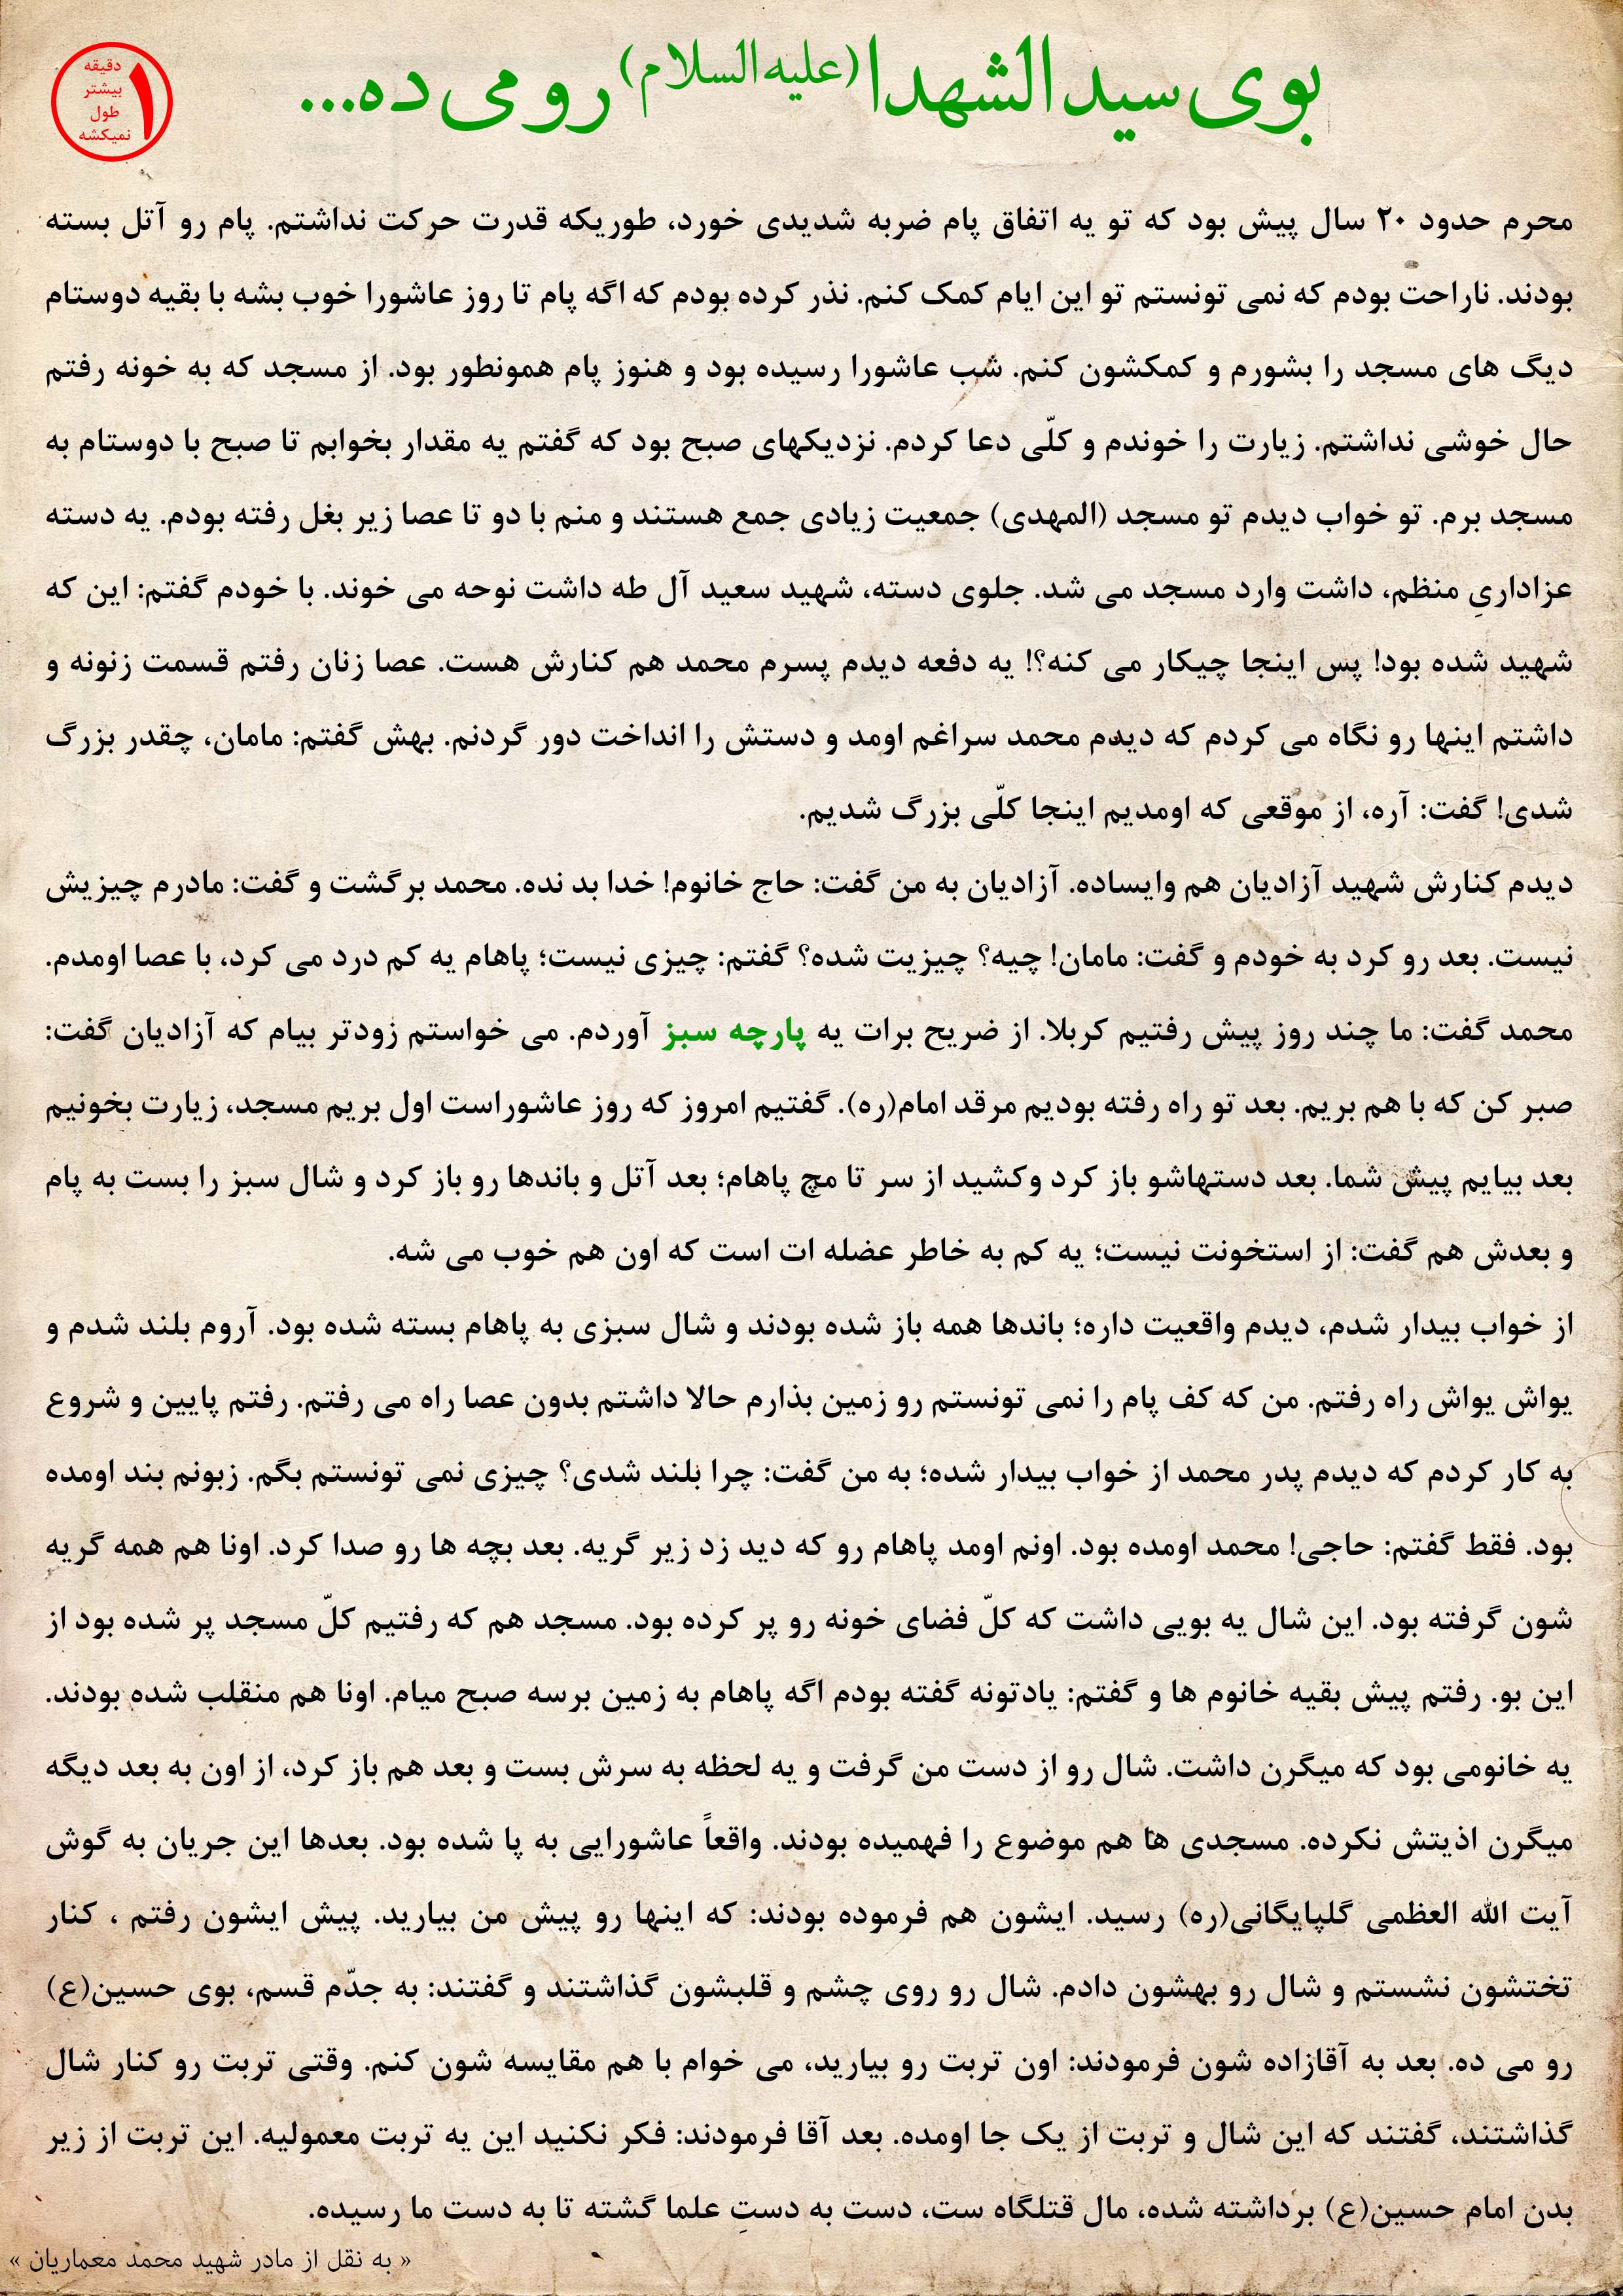 بوی سیدالشهدا(علیه السلام) رو می ده...
۱ دقیقه
بیشتر
طول
نمیکشه
محرم حدود ۲۰ سال پیش بود که تو یه اتفاق پام ضربه شدیدی خورد، طوریکه قدرت حرکت نداشتم. پام رو آتل بسته
بودند. ناراحت بودم که نمی تونستم تو این ایام کمک کنم. نذر کرده بودم که اگه پام تا روز عاشورا خوب بشه با بقیه دوستام
دیگ های مسجد را بشورم و کمکشون کنم. شب عاشورا رسیده بود و هنوز پام همونطور بود. از مسجد که به خونه رفتم
حال خوشی نداشتم. زیارت را خوندم و کلّی دعا کردم. نزدیکهای صبح بود که گفتم یه مقدار بخوابم تا صبح با دوستام به
مسجد برم. تو خواب دیدم تو مسجد (المهدی) جمعیت زیادی جمع هستند و منم با دو تا عصا زیر بغل رفته بودم. یه دسته
عزاداریِ منظم، داشت وارد مسجد می شد. جلوی دسته، شهید سعید آل طه داشت نوحه می خوند. با خودم گفتم: این که
شهید شده بود! پس اینجا چیکار می کنه؟! یه دفعه دیدم پسرم محمد هم کنارش هست. عصا زنان رفتم قسمت زنونه و
داشتم اینها رو نگاه می کردم که دیدم محمد سراغم اومد و دستش را انداخت دور گردنم. بهش گفتم: مامان، چقدر بزرگ
شدی! گفت: آره، از موقعی که اومدیم اینجا کلّی بزرگ شدیم.
دیدم کنارش شهید آزادیان هم وایساده. آزادیان به من گفت: حاج خانوم! خدا بد نده. محمد برگشت و گفت: مادرم چیزیش
نیست. بعد رو کرد به خودم و گفت: مامان! چیه؟ چیزیت شده؟ گفتم: چیزی نیست؛ پاهام یه کم درد می کرد، با عصا اومدم.
محمد گفت: ما چند روز پیش رفتیم کربلا. از ضریح برات یه پارچه سبز آوردم. می خواستم زودتر بیام که آزادیان گفت:
صبر کن که با هم بریم. بعد تو راه رفته بودیم مرقد امام(ره). گفتیم امروز که روز عاشوراست اول بریم مسجد، زیارت بخونیم
بعد بیایم پیش شما. بعد دستهاشو باز کرد وکشید از سر تا مچ پاهام؛ بعد آتل و باندها رو باز کرد و شال سبز را بست به پام
و بعدش هم گفت: از استخونت نیست؛ یه کم به خاطر عضله ات است که اون هم خوب می شه.
از خواب بیدار شدم، دیدم واقعیت داره؛ باندها همه باز شده بودند و شال سبزی به پاهام بسته شده بود. آروم بلند شدم و
یواش یواش راه رفتم. من که کف پام را نمی تونستم رو زمین بذارم حالا داشتم بدون عصا راه می رفتم. رفتم پایین و شروع
به کار کردم که دیدم پدر محمد از خواب بیدار شده؛ به من گفت: چرا بلند شدی؟ چیزی نمی تونستم بگم. زبونم بند اومده
بود. فقط گفتم: حاجی! محمد اومده بود. اونم اومد پاهام رو که دید زد زیر گریه. بعد بچه ها رو صدا کرد. اونا هم همه گریه
شون گرفته بود. این شال یه بویی داشت که کلّ فضای خونه رو پر کرده بود. مسجد هم که رفتیم کلّ مسجد پر شده بود از
این بو. رفتم پیش بقیه خانوم ها و گفتم: یادتونه گفته بودم اگه پاهام به زمین برسه صبح میام. اونا هم منقلب شده بودند.
یه خانومی بود که میگرن داشت. شال رو از دست من گرفت و یه لحظه به سرش بست و بعد هم باز کرد، از اون به بعد دیگه
میگرن اذیتش نکرده. مسجدی ها هم موضوع را فهمیده بودند. واقعاً عاشورایی به پا شده بود. بعدها این جریان به گوش
آیت الله العظمی گلپایگانی(ره) رسید. ایشون هم فرموده بودند: که اینها رو پیش من بیارید. پیش ایشون رفتم ، کنار
تختشون نشستم و شال رو بهشون دادم. شال رو روی چشم و قلبشون گذاشتند و گفتند: به جدّم قسم، بوی حسین(ع)
رو می ده. بعد به آقازاده شون فرمودند: اون تربت رو بیارید، می خوام با هم مقایسه شون کنم. وقتی تربت رو کنار شال
گذاشتند، گفتند که این شال و تربت از یک جا اومده. بعد آقا فرمودند: فکر نکنید این یه تربت معمولیه. این تربت از زیر
بدن امام حسین(ع) برداشته شده، مال قتلگاه ست، دست به دستِ علما گشته تا به دست ما رسیده.
« به نقل از مادر شهید محمد معماریان »